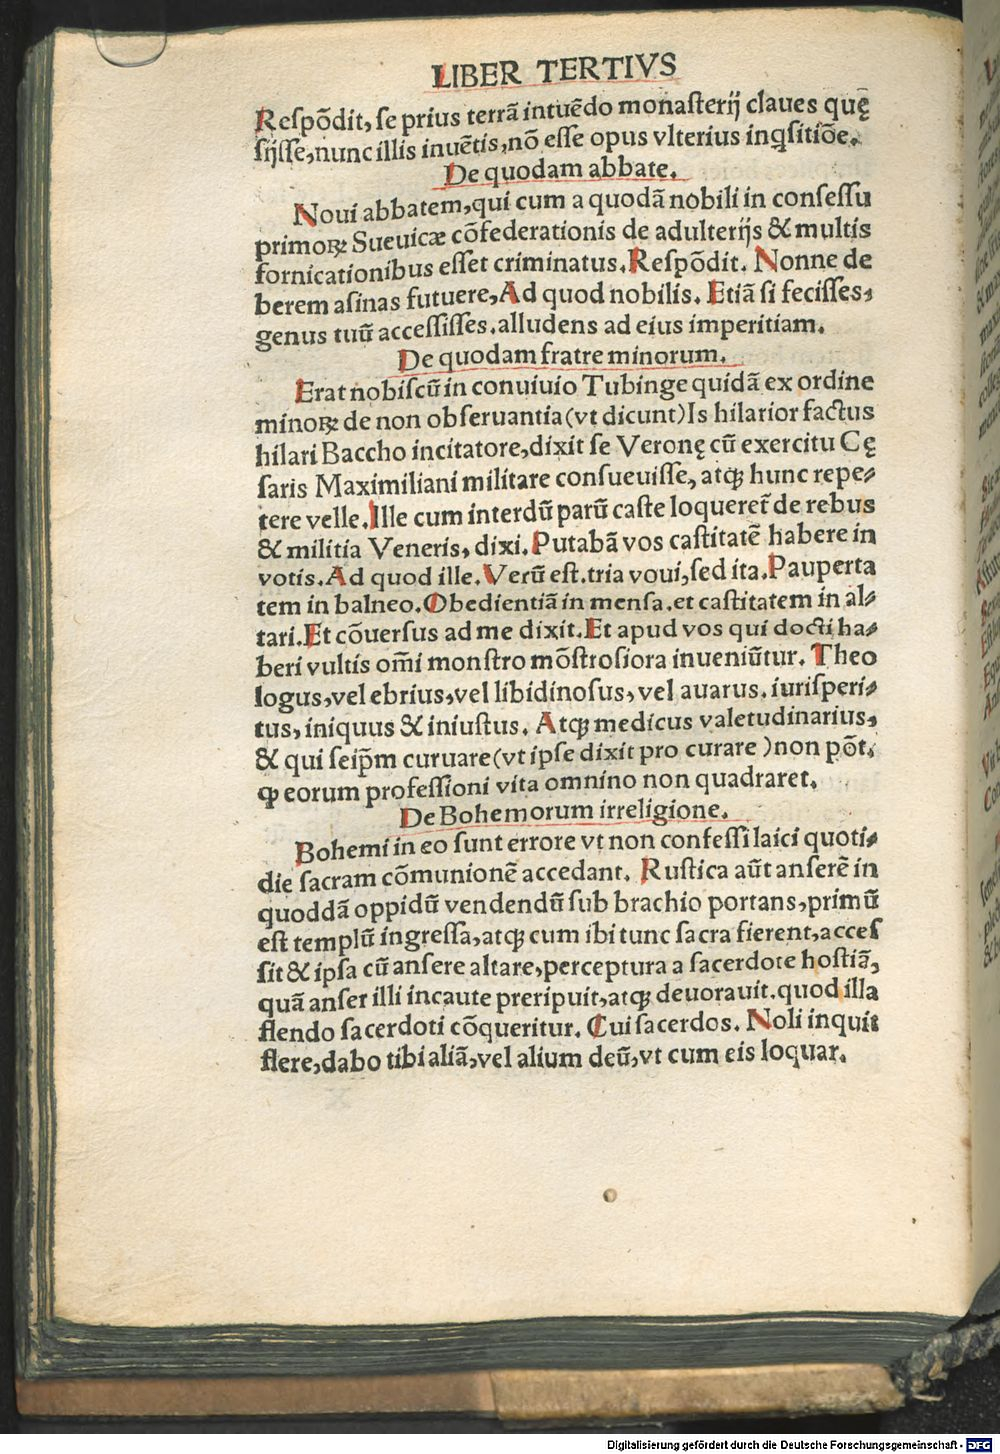 LIBER TERTIVS
Reſpõdit, ſe prius terrã intuẽdo monaſterij claues quę
ſijſſe, nunc illis inuẽtis, nõ eſſe opus vlterius inqͥſitiõe.
De quodam abbate.
Noui abbatem, qui cum a quodã nobili in conſeſſu
primoꝝ Sueuicæ cõfederationis de adulterijs & multis
fornicationibus eſſet criminatus. Reſpõdit. Nonne de
berem aſinas futuere, Ad quod nobilis. Etiã ſi feciſſes,
genus tuũ acceſſiſſes. alludens ad eius imperitiam.
De quodam fratre minorum.
Erat nobiſcũ in conuiuio Tubinge quidã ex ordine
minoꝝ de non obſeruantia (vt dicunt) Is hilarior factus
hilari Baccho incitatore, dixit ſe Veronę cũ exercitu Cę
ſaris Maximiliani militare conſueuiſſe, atqꝫ hunc repe⸗
tere velle. Ille cum interdũ parũ caſte loqueret̃ de rebus
& militia Veneris, dixi. Putabã vos caſtitatẽ habere in
votis. Ad quod ille. Verũ eſt. tria voui, ſed ita. Pauperta
tem in balneo. Obedientiã in menſa. et caſtitatem in al⸗
tari. Et cõuerſus ad me dixit. Et apud vos qui docti ha⸗
beri vultis om̃i monſtro mõſtroſiora inueniũtur. Theo
logus, vel ebrius, vel libidinoſus, vel auarus. iuriſperi⸗
tus, iniquus & iniuſtus. Atqꝫ medicus valetudinarius,
& qui ſeip̃m curuare (vt ipſe dixit pro curare) non põt.
qꝫ eorum profeſſioni vita omnino non quadraret.
De Bohemorum irreligione.
Bohemi in eo ſunt errore vt non confeſſi laici quoti⸗
die ſacram cõmunionẽ accedant. Ruſtica aũt anſerẽ in
quoddã oppidũ vendendũ ſub brachio portans, primũ
eſt templũ ingreſſa, atqꝫ cum ibi tunc ſacra fierent, acceſ
ſit & ipſa cũ anſere altare, perceptura a ſacerdote hoſtiã,
quã anſer illi incaute preripuit, atqꝫ deuorauit. quod illa
flendo ſacerdoti cõqueritur. Cui ſacerdos. Noli inquit
flere, dabo tibi aliã, vel alium deũ, vt cum eis loquar.
Digitalisierung gefördert durch die Deutsche Forschungsgemeinschaft - DFG